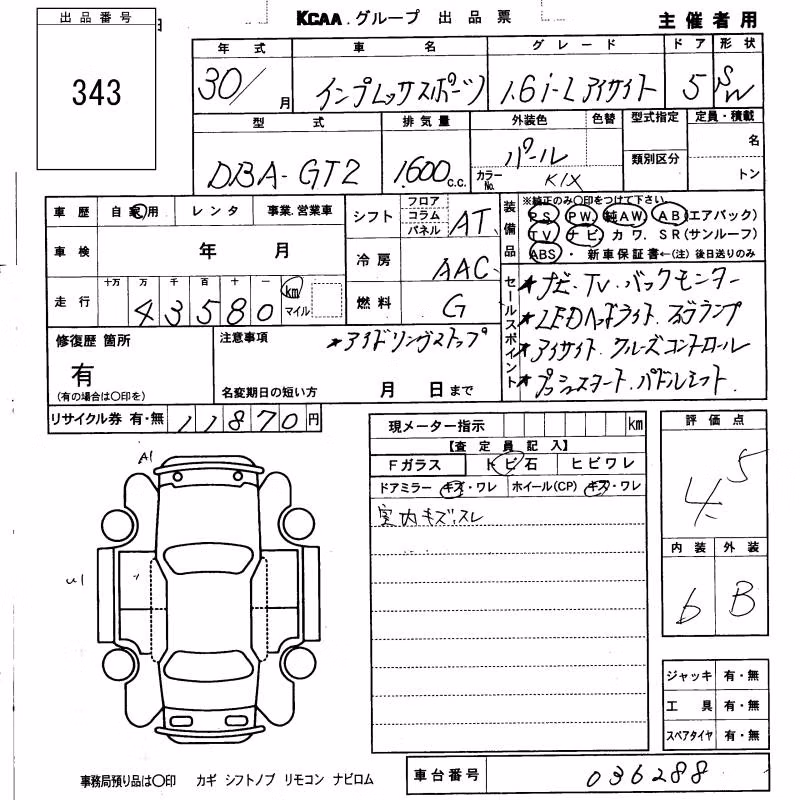 出品番号
343
KCAA.グループ 出品票
主催者用
年式 車名 グレード ドア 形状
30/ 月 インプレッサスポーツ 1.6i-L アイサイト 5 SW
型式 排気量 外装色 色替 型式指定 定員・積載
DBA-GT2 1600 c.c. パール 類別区分 名
カラーNo. K1X トン
車歴 自家用 レンタ 事業.営業車
シフト フロア コラム パネル AT
装備品 ※純正のみ〇印をつけて下さい。
PS PW 純AW AB(エアバック)
TV ナビ カワ SR(サンルーフ)
ABS・ 新車保証書←(注)後日送りのみ
車検 年 月
冷房 AAC
走行 十万 万 千 百 十 一 km マイル
43580
燃料 G
セールスポイント
★ナビ・TV・バックモニター
★LEDヘッドライト.フォグランプ
★アイサイト.クルーズコントロール
★プッシュスタート.パドルシフト.
修復歴 箇所
有
(有の場合は〇印を)
注意事項 ★アイドリングストップ
名変期日の短い方 月 日まで
リサイクル券 有・無 11870円
現メーター指示 km
【査定員記入】
Fガラス トビ石 ヒビワレ
ドアミラー キズ・ワレ ホイール(CP) キズ・ワレ
室内キズ.スレ
評価点
4.5
内装 外装
b B
A1
U1
ジャッキ 有・無
工具 有・無
スペアタイヤ 有・無
事務局預り品は〇印 カギ シフトノブ リモコン ナビロム
車台番号 036288